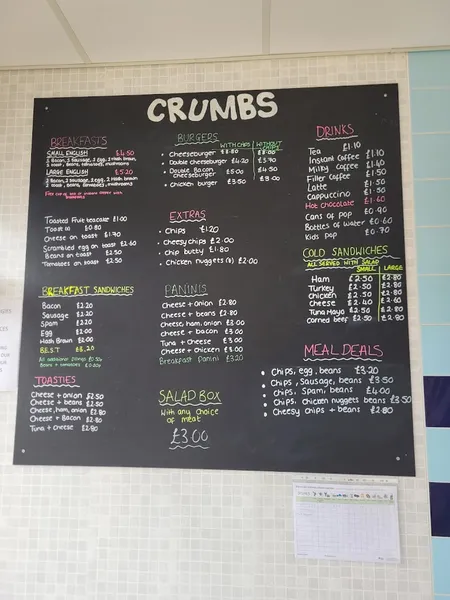 CRUMBS
BREAKFASTS
SMALL ENGLISH £4.50
LARGE ENGLISH £5.20
Toasted fruit teacake £1.00
Toast £0.80
Cheese on toast £1.70
Scrambled egg on toast £2.60
Beans on toast £2.50
Tomatoes on toast £2.50
BREAKFAST SANDWICHES
Bacon £2.20
Sausage £2.20
Spam £2.20
Egg £2.00
Hash Brown £2.00
BEST £3.20
TOASTIES
Cheese + onion £2.50
Cheese + beans £2.50
Cheese, ham, onion £2.80
Cheese + Bacon £2.80
Tuna + cheese £2.80
BURGERS
WITH CHIPS WITHOUT CHIPS
Cheeseburger £3.50 £3.00
Double cheeseburger £4.20 £3.70
Double Bacon Cheeseburger £5.00 £4.50
Chicken burger £3.50 £3.00
EXTRAS
Chips £1.20
Cheesy chips £2.00
Chip butty £1.80
Chicken nuggets (6) £2.00
PANINIS
Cheese + onion £2.80
Cheese + beans £2.80
Cheese, ham, onion £3.00
Cheese + bacon £3.00
Tuna + cheese £3.00
Cheese + chicken £3.00
Breakfast Panini £3.20
SALAD BOX
With any choice of meat
£3.00
DRINKS
Tea £1.10
Instant Coffee £1.10
Milky Coffee £1.40
Filter Coffee £1.50
Latte £1.50
Cappuccino £1.50
Hot chocolate £1.60
Cans of pop £0.90
Bottles of water £0.60
Kids pop £0.70
COLD SANDWICHES
ALL SERVED WITH SALAD
SMALL LARGE
Ham £2.50 £2.80
Turkey £2.50 £2.80
Chicken £2.50 £2.80
Cheese £2.40 £2.60
Tuna Mayo £2.50 £2.80
Corned beef £2.50 £2.80
MEAL DEALS
Chips, egg, beans £3.20
Chips, Sausage, beans £3.50
Chips, Spam, beans £4.00
Chips, chicken nuggets beans £3.50
Cheesy chips + beans £2.80